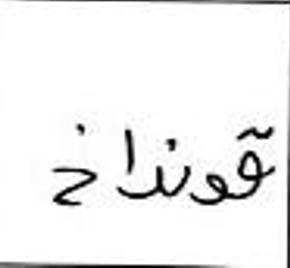 قونداخ